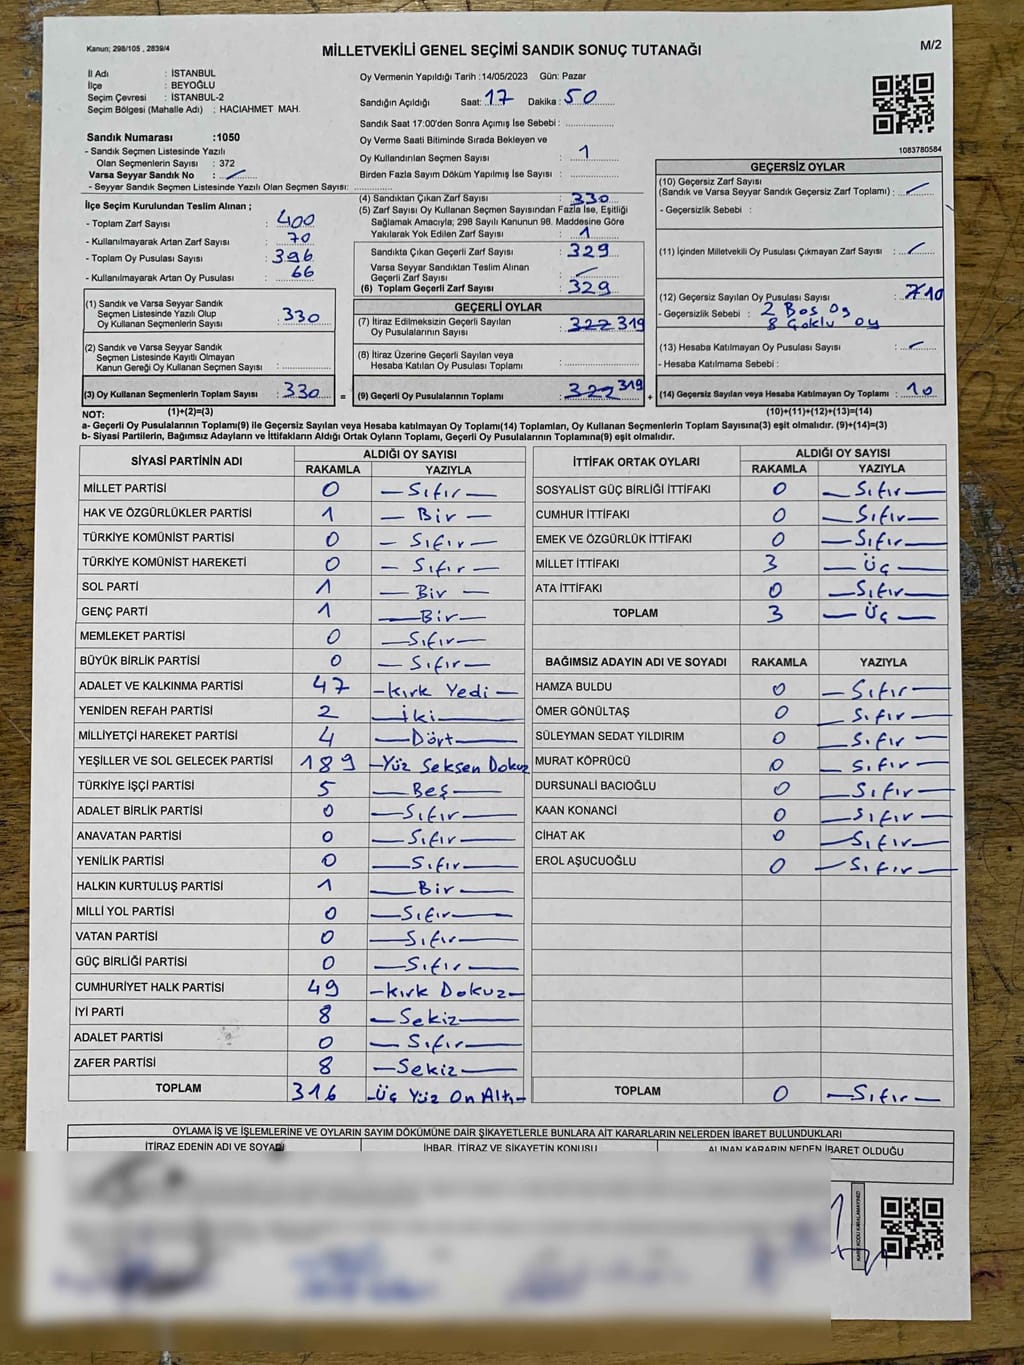 Kanun; 298/105 , 2839/4
MİLLETVEKİLİ GENEL SEÇİMİ SANDIK SONUÇ TUTANAĞI
M/2
İl Adı : İSTANBUL
İlçe : BEYOĞLU
Seçim Çevresi : İSTANBUL-2
Seçim Bölgesi (Mahalle Adı) : HACIAHMET MAH.
Sandık Numarası :1050
- Sandık Seçmen Listesinde Yazılı
Olan Seçmenlerin Sayısı : 372
Varsa Seyyar Sandık No :
- Seyyar Sandık Seçmen Listesinde Yazılı Olan Seçmen Sayısı:
Oy Vermenin Yapıldığı Tarih :14/05/2023 Gün: Pazar
Sandığın Açıldığı Saat: 17 Dakika : 50
Sandık Saat 17:00'den Sonra Açımış İse Sebebi :
Oy Verme Saati Bitiminde Sırada Bekleyen ve
Oy Kullandırılan Seçmen Sayısı : 1
Birden Fazla Sayım Döküm Yapılmış İse Sayısı :
1083780584
İlçe Seçim Kurulundan Teslim Alınan ;
- Toplam Zarf Sayısı : 400
- Kullanılmayarak Artan Zarf Sayısı : 70
- Toplam Oy Pusulası Sayısı : 396
- Kullanılmayarak Artan Oy Pusulası : 66
(1) Sandık ve Varsa Seyyar Sandık
Seçmen Listesinde Yazılı Olup
Oy Kullanan Seçmenlerin Sayısı : 330
(2) Sandık ve Varsa Seyyar Sandık
Seçmen Listesinde Kayıtlı Olmayan
Kanun Gereği Oy Kullanan Seçmen Sayısı :
(3) Oy Kullanan Seçmenlerin Toplam Sayısı : 330 =
(4) Sandıktan Çıkan Zarf Sayısı : 330
(5) Zarf Sayısı Oy Kullanan Seçmen Sayısından Fazla İse, Eşitliği
Sağlamak Amacıyla; 298 Sayılı Kanunun 98. Maddesine Göre
Yakılarak Yok Edilen Zarf Sayısı : 1
Sandıkta Çıkan Geçerli Zarf Sayısı : 329
Varsa Seyyar Sandıktan Teslim Alınan
Geçerli Zarf Sayısı :
(6) Toplam Geçerli Zarf Sayısı : 329
GEÇERLİ OYLAR
(7) İtiraz Edilmeksizin Geçerli Sayılan
Oy Pusulalarının Sayısı : 322 319
(8) İtiraz Üzerine Geçerli Sayılan veya
Hesaba Katılan Oy Pusulası Toplamı :
(9) Geçerli Oy Pusulalarının Toplamı : 322 319 +
GEÇERSİZ OYLAR
(10) Geçersiz Zarf Sayısı
(Sandık ve Varsa Seyyar Sandık Geçersiz Zarf Toplamı) :
- Geçersizlik Sebebi :
(11) İçinden Milletvekili Oy Pusulası Çıkmayan Zarf Sayısı :
(12) Geçersiz Sayılan Oy Pusulası Sayısı : 7 10
- Geçersizlik Sebebi : 2 Boş Oy
8 Çoklu oy
(13) Hesaba Katılmayan Oy Pusulası Sayısı :
- Hesaba Katılmama Sebebi :
(14) Geçersiz Sayılan veya Hesaba Katılmayan Oy Toplamı : 10
NOT: (1)+(2)=(3) (10)+(11)+(12)+(13)=(14)
a- Geçerli Oy Pusulalarının Toplamı(9) ile Geçersiz Sayılan veya Hesaba Katılmayan Oy Toplamı(14) Toplamları, Oy Kullanan Seçmenlerin Toplam Sayısına(3) eşit olmalıdır. (9)+(14)=(3)
b- Siyasi Partilerin, Bağımsız Adayların ve İttifakların Aldığı Ortak Oyların Toplamı, Geçerli Oy Pusulalarının Toplamına(9) eşit olmalıdır.
SİYASİ PARTİNİN ADI
ALDIĞI OY SAYISI
RAKAMLA YAZIYLA
MİLLET PARTİSİ 0 Sıfır
HAK VE ÖZGÜRLÜKLER PARTİSİ 1 Bir
TÜRKİYE KOMÜNİST PARTİSİ 0 Sıfır
TÜRKİYE KOMÜNİST HAREKETİ 0 Sıfır
SOL PARTİ 1 Bir
GENÇ PARTİ 1 Bir
MEMLEKET PARTİSİ 0 Sıfır
BÜYÜK BİRLİK PARTİSİ 0 Sıfır
ADALET VE KALKINMA PARTİSİ 47 Kırk Yedi
YENİDEN REFAH PARTİSİ 2 İki
MİLLİYETÇİ HAREKET PARTİSİ 4 Dört
YEŞİLLER VE SOL GELECEK PARTİSİ 189 Yüz Seksen Dokuz
TÜRKİYE İŞÇİ PARTİSİ 5 Beş
ADALET BİRLİK PARTİSİ 0 Sıfır
ANAVATAN PARTİSİ 0 Sıfır
YENİLİK PARTİSİ 0 Sıfır
HALKIN KURTULUŞ PARTİSİ 1 Bir
MİLLİ YOL PARTİSİ 0 Sıfır
VATAN PARTİSİ 0 Sıfır
GÜÇ BİRLİĞİ PARTİSİ 0 Sıfır
CUMHURİYET HALK PARTİSİ 49 Kırk Dokuz
İYİ PARTİ 8 Sekiz
ADALET PARTİSİ 0 Sıfır
ZAFER PARTİSİ 8 Sekiz
TOPLAM 316 Üç Yüz On Altı
İTTİFAK ORTAK OYLARI
ALDIĞI OY SAYISI
RAKAMLA YAZIYLA
SOSYALİST GÜÇ BİRLİĞİ İTTİFAKI 0 Sıfır
CUMHUR İTTİFAKI 0 Sıfır
EMEK VE ÖZGÜRLÜK İTTİFAKI 0 Sıfır
MİLLET İTTİFAKI 3 Üç
ATA İTTİFAKI 0 Sıfır
TOPLAM 3 Üç
BAĞIMSIZ ADAYIN ADI VE SOYADI RAKAMLA YAZIYLA
HAMZA BULDU 0 Sıfır
ÖMER GÖNÜLTAŞ 0 Sıfır
SÜLEYMAN SEDAT YILDIRIM 0 Sıfır
MURAT KÖPRÜCÜ 0 Sıfır
DURSUNALİ BACIOĞLU 0 Sıfır
KAAN KONANCİ 0 Sıfır
CİHAT AK 0 Sıfır
EROL AŞUCUOĞLU 0 Sıfır
TOPLAM 0 Sıfır
OYLAMA İŞ VE İŞLEMLERİNE VE OYLARIN SAYIM DÖKÜMÜNE DAİR ŞİKAYETLERLE BUNLARA AİT KARARLARIN NELERDEN İBARET BULUNDUKLARI
İTİRAZ EDENİN ADI VE SOYADI
İHBAR, İTİRAZ VE ŞİKAYETİN KONUSU
ALINAN KARARIN NEDEN İBARET OLDUĞU